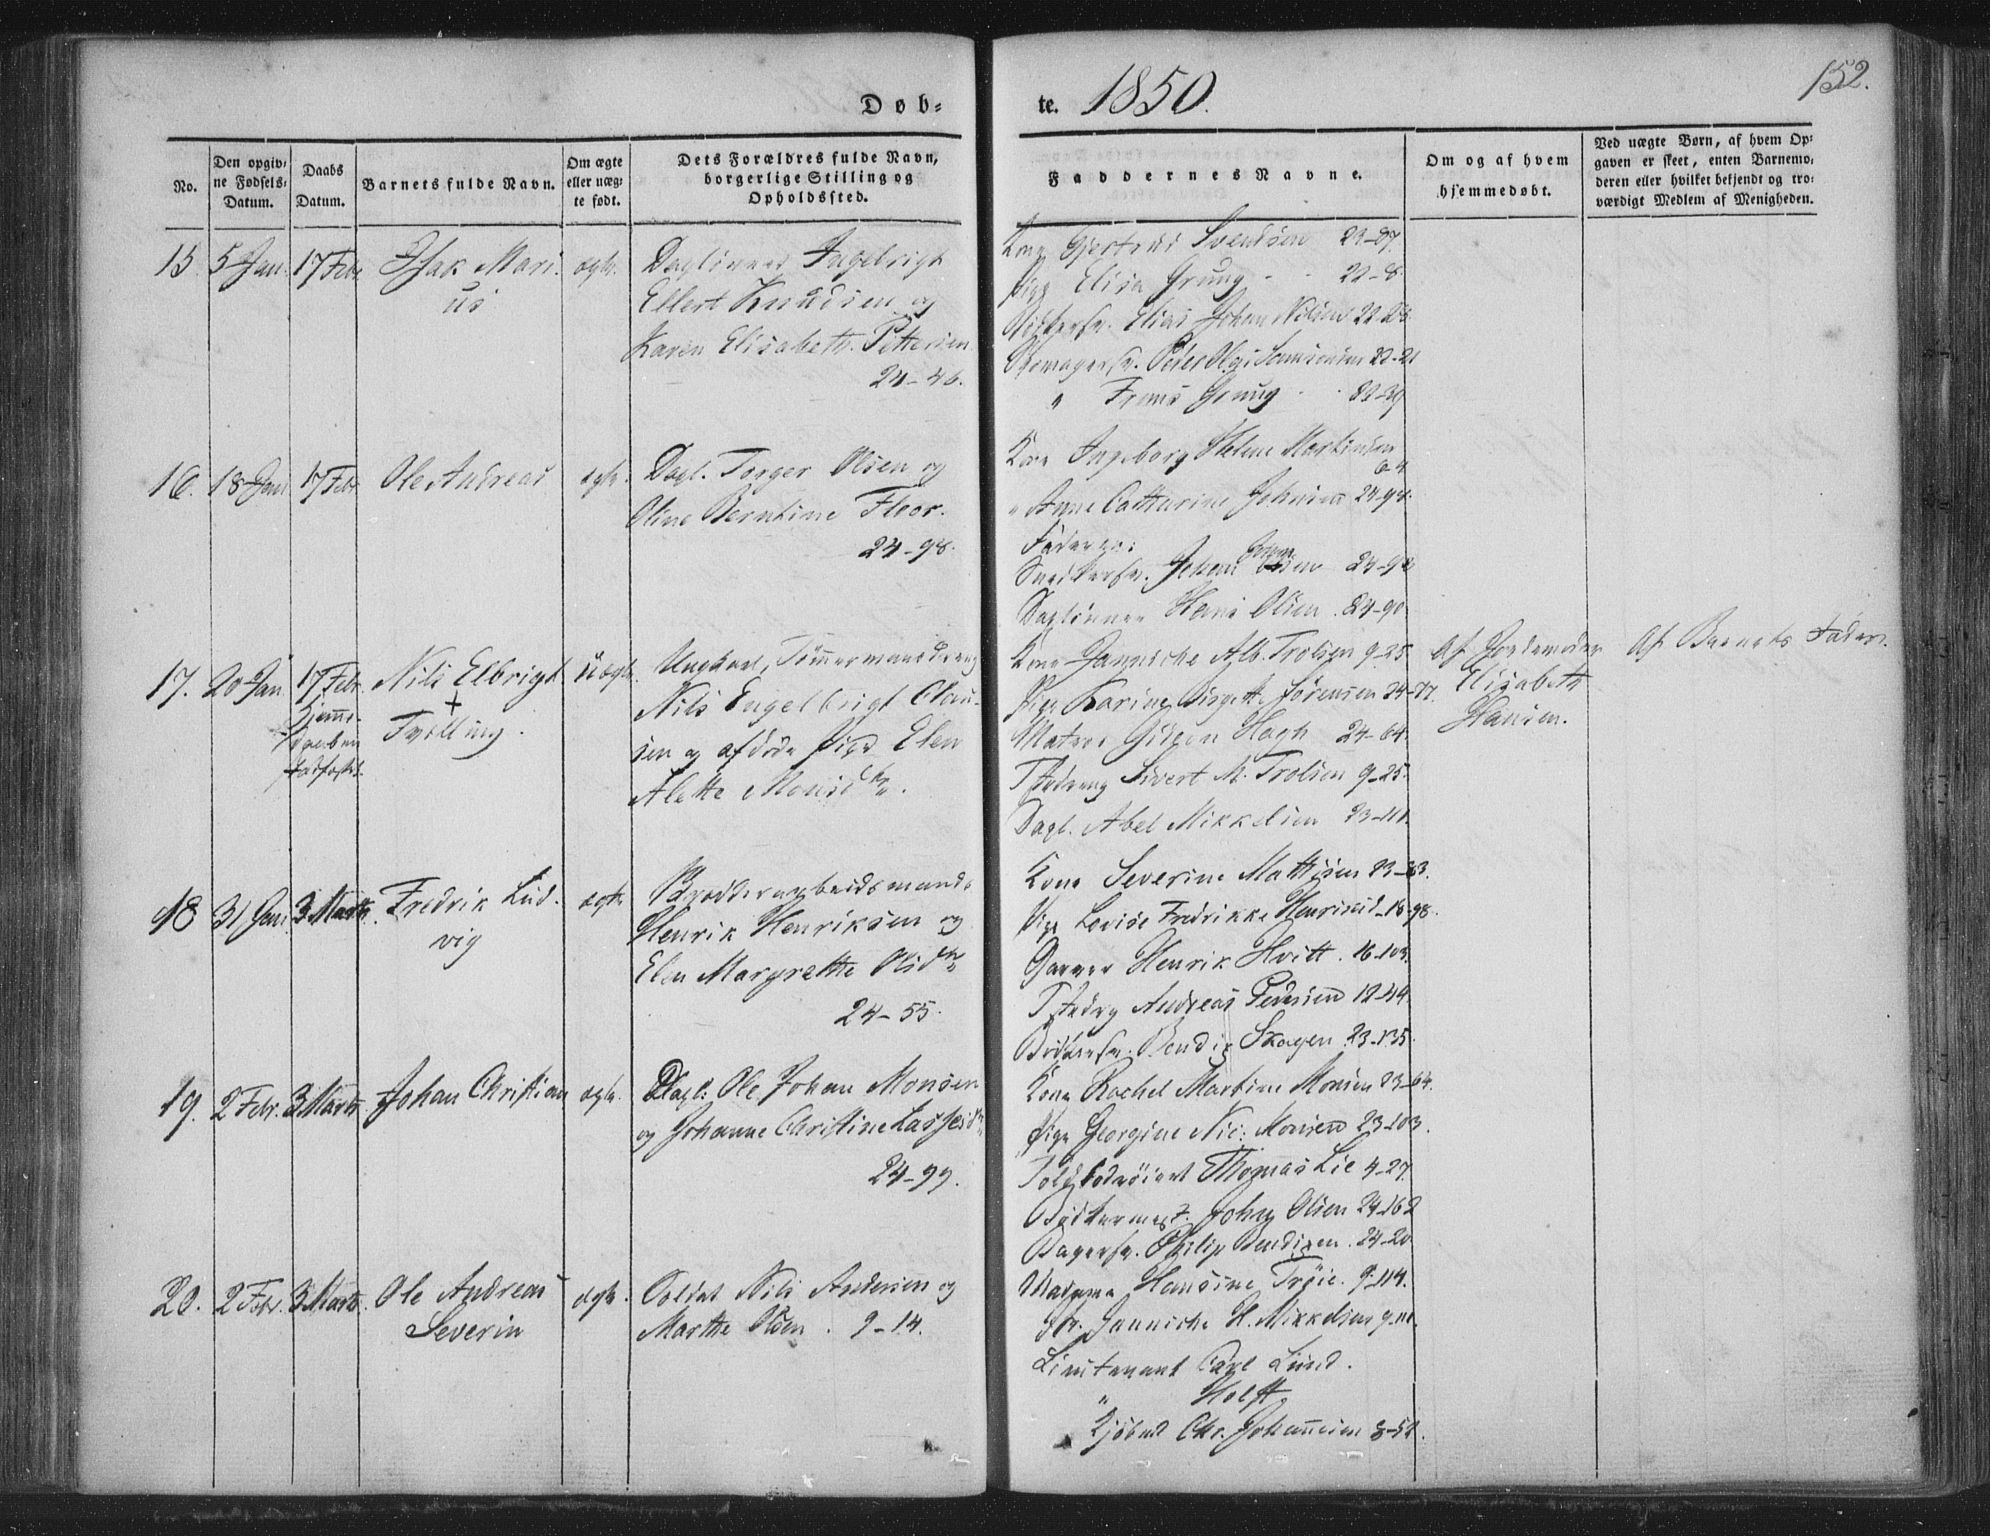 Døb-
te. 1850.
152.
No.
Den opgiv-
ne Fødsels-
Datum.
Daabs
Datum.
Barnets fulde Navn.
Om ægte
eller uæg-
te født.
Dets Forældres fulde Navn,
borgerlige Stilling og
Opholdssted.
Faddernes Navne.
Om og af hvem
hjemmedøbt.
Ved uægte Børn, af hvem Op-
gaven er skeet, enten Barnemo-
deren eller hvilket bekjendt og tro-
værdigt Medlem af Menigheden.
15. 5 Jan. 17 Febr. Isak Mari-
us
ægte.
Daglönner Ingebrigt
Ellert Knudsen og
Karen Elisabeth Pettersen
24-46.
Kone Gjertrud Svendsen 23-87.
Pige Elisa Grung 22-8.
Elias Johan Nilsen
22-21
" Frans Grung
16. 18 Jan. 17 Febr. Ole Andreas ægte.
Dagl. Torger Olsen og
Oline Berntine Floor.
24-98.
Kone Ingeborg Helene Martinsen
" Anne Catharine Johnsen 24-98.
Faderen.
Snedkersv. Johan
Daglönner Hans Olsen 24-90.
17. 20 Jan. 17 Febr. Nils Elbrigt
+
Tvilling.
uægte.
Ungkarl, Tömmermandsdreng
Nils Engelbrigt Claus-
sen og afdöde Pige Elen
Alette Monsdtr.
Kone Janniche Alb. Trolsen 9-25.
Pige Karine Birgitte Sörensen 24-77.
Matros Hagh 24-64.
Sivert M. Trolsen 9-25.
Dagl. Abel Mikkelsen 23-111.
Af Jordemoder
Elisabeth
Hansen.
Af Barnets Fader.
18 31 Jan. 3 Marts. Fredrik Lud-
vig
ægte.
Henrik Henriksen og
Elen Margrethe Olsdtr
24-55.
Kone Severine Mathisen 23-83.
Pige Lovise Fredrikke Henriksd. 18-98.
Garver Henrik Hvitt. 16-103.
Andreas Pedersen 12-49.
Bödkersv. Bendix Skagen 23-135.
19. 2 Febr. 3 Marts. Johan Christian ægte.
Dagl: Ole Johan Monsen
og Johanne Christine Lassesdtr
24-99.
Kone Rachel Martine Monsen 23-64.
Pige Georgine Nic: Monsen 23-103.
Thomas Lie 4-27.
Bödkermest. Johan Olsen 24-162
Bagersv. Philip Bendixen. 24-20.
20. 2 Febr. 3 Marts. Ole Andreas
Severin
ægte.
Soldat Nils Andersen og
Marthe Olsen. 9-14.
Madame Hansine Tröie. 9-114.
Jfr. Janniche H. Mikkelsen
Lieutenant Carl Lund.
" Holst
Kjöbmd Chr. Johannesen 8-52.